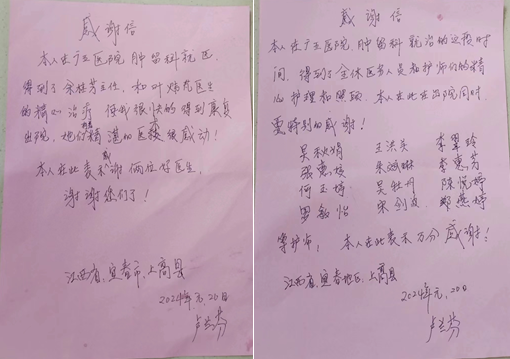 感谢信
本人在广三医院 肿留科就医
得到了余桂芳主任,和叶炜光医生
的精心治疗 使我很快的得到康复
出院,他们精湛的医术很感动!
本人在此表示感谢两位好医生,
谢谢您们了!
江西省,宜春市,上高县
2024年元,20日
卢兰芬
感谢信
本人在广三医院,肿留科就治的这段时
间,得到了全休医务人员和护师们的精
心护理和照顾,本人在此在出院同时,
要特别的感谢!
吴秋娟 王洪英 李翠玲
张惠 朱 琳 李惠芳
何玉婷 吴牡丹 陈悦婷
罗敏怡 宋剑波 郑燕婷
等护师, 本人在此表示万分感谢!
江西省,宜春地区,上高县
2024年元,20日
卢兰芬